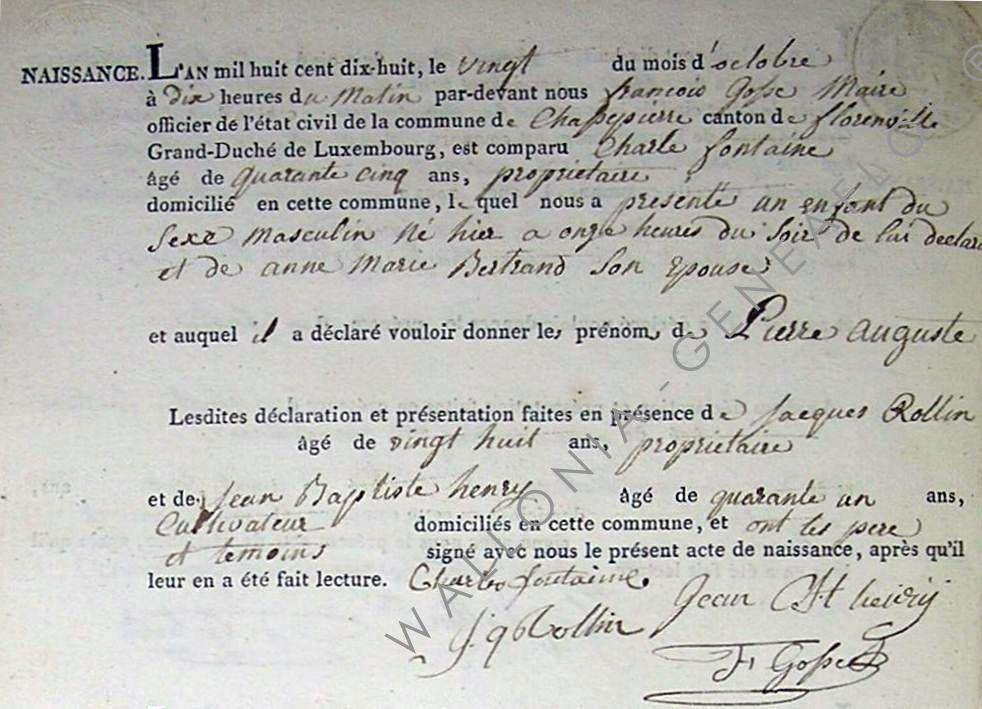 NAISSANCE. L'AN mil huit cent dix-huit, le vingt du mois d'octobre
à dix heures du Matin par-devant nous françois Gosse Maire
officier de l'état civil de la commune de Chassepierre canton de florenville
Grand-Duché de Luxembourg, est comparu Charle fontaine
âgé de quarante cinq ans, propriétaire
domicilié en cette commune, le quel nous a présenté un enfant du
Sexe Masculin Né hier a onze heures du Soir de lui declarant
et de anne Marie Bertrand Son Epouse
et auquel il a déclaré vouloir donner les prénoms de Pierre auguste
Lesdites déclaration et présentation faites en présence de Jacques Rollin
âgé de vingt huit ans, propriétaire
et de Jean Baptiste henry âgé de quarante un ans,
Cultivateur domiciliés en cette commune, et ont les pere
et temoins signé avec nous le présent acte de naissance, après qu'il
leur en a été fait lecture. Charles fontaine.
Jean Bt henry
J. q Rollin
F Gosse
WALLONIA-GENEALOGIE